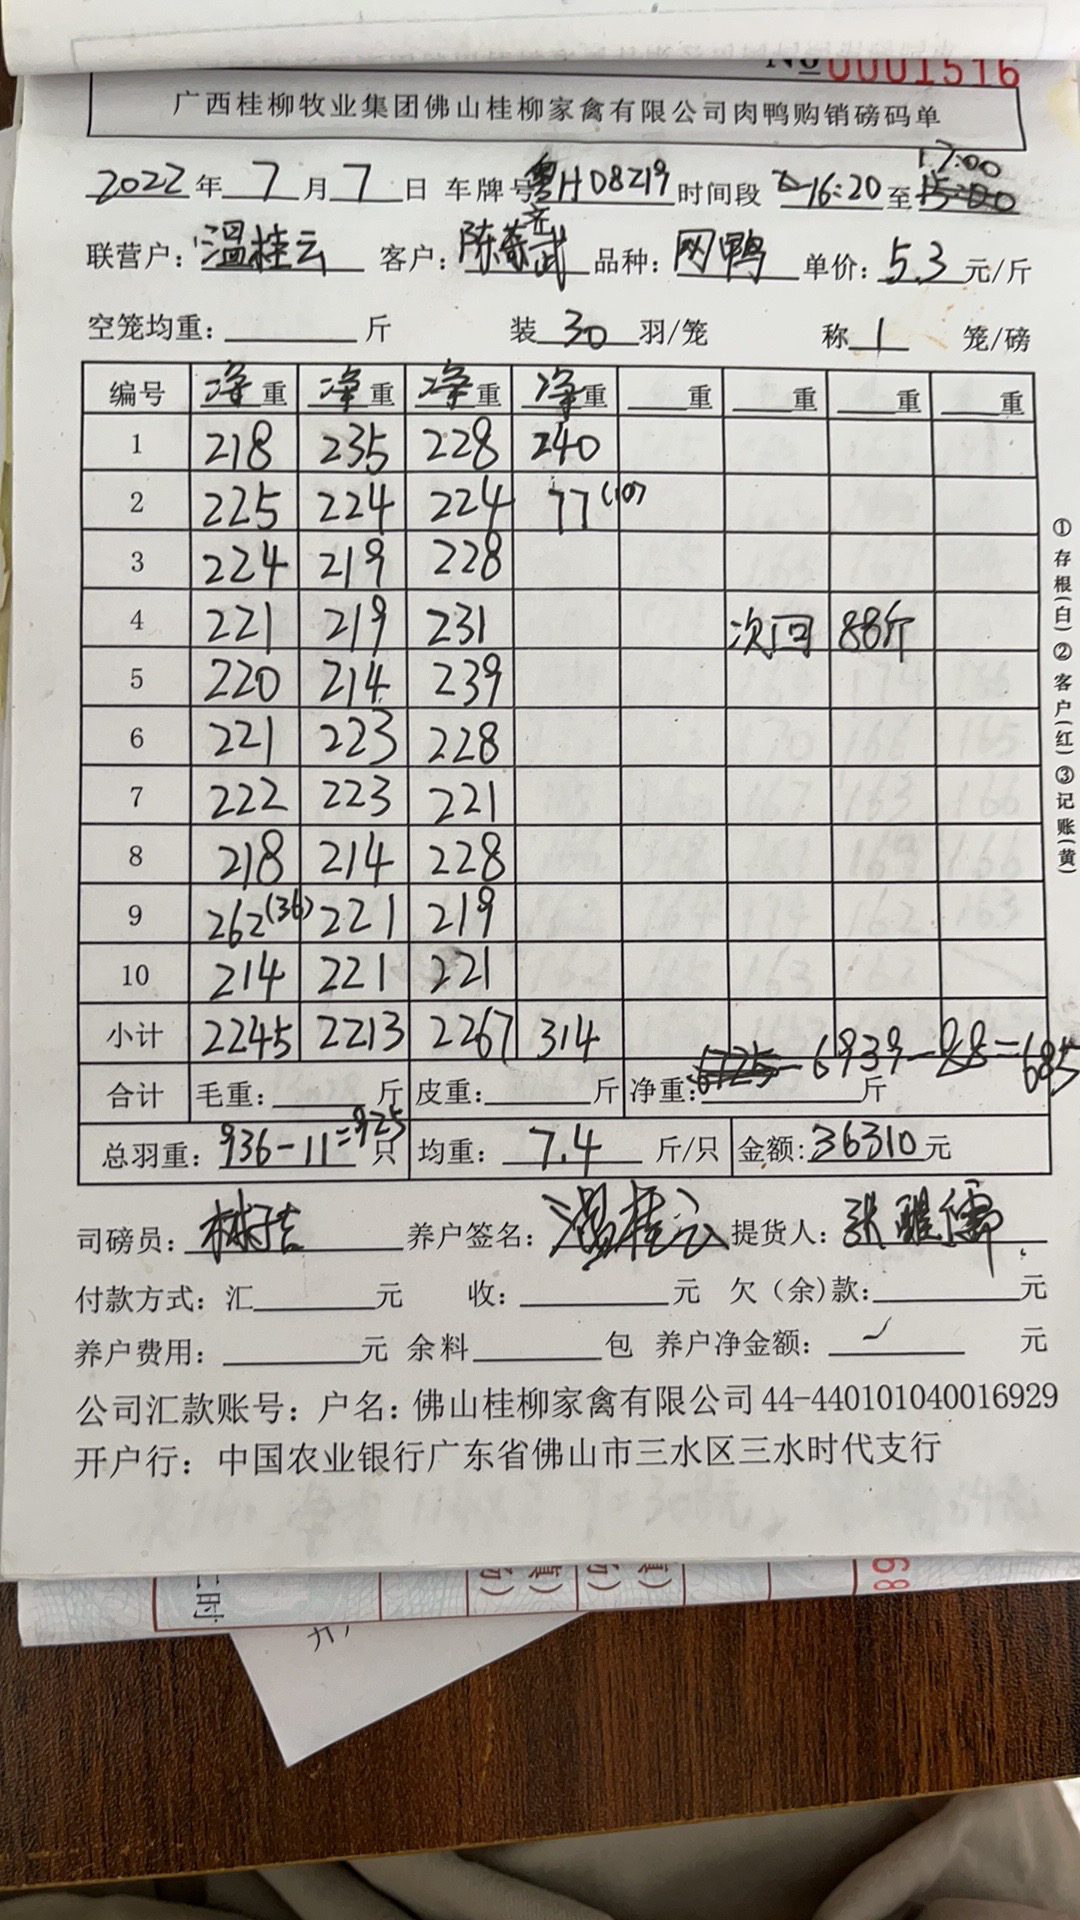 No 0001516
广西桂柳牧业集团佛山桂柳家禽有限公司肉鸭购销磅码单
17:00
2022年7月7日 车牌号粤H08219时间段 16:20至15:00
联营户:温桂云 客户:陈齐武 品种:网鸭 单价:5.3元/斤
空笼均重: 斤 装30羽/笼 称1笼/磅
编号 净重 净重 净重 净重 重 重 重 重
1 218 235 228 240
2 225 224 224 77(10)
3 224 219 228
4 221 219 231 次回 88斤
5 220 214 239
6 221 223 228
7 222 223 221
8 218 214 228
9 262(36) 221 219
10 214 221 221
小计 2245 2213 2267 314
合计 毛重: 斤 皮重: 斤 净重:6725-6939-88=685 斤
总羽重:936-11=925只 均重:7.4斤/只 金额:36310元
司磅员: 养户签名:温桂云 提货人:
付款方式:汇 元 收: 元 欠(余)款: 元
养户费用: 元 余料 包 养户净金额: 元
公司汇款账号:户名:佛山桂柳家禽有限公司44-440101040016929
开户行:中国农业银行广东省佛山市三水区三水时代支行
①存根(白)②客户(红)③记账(黄)